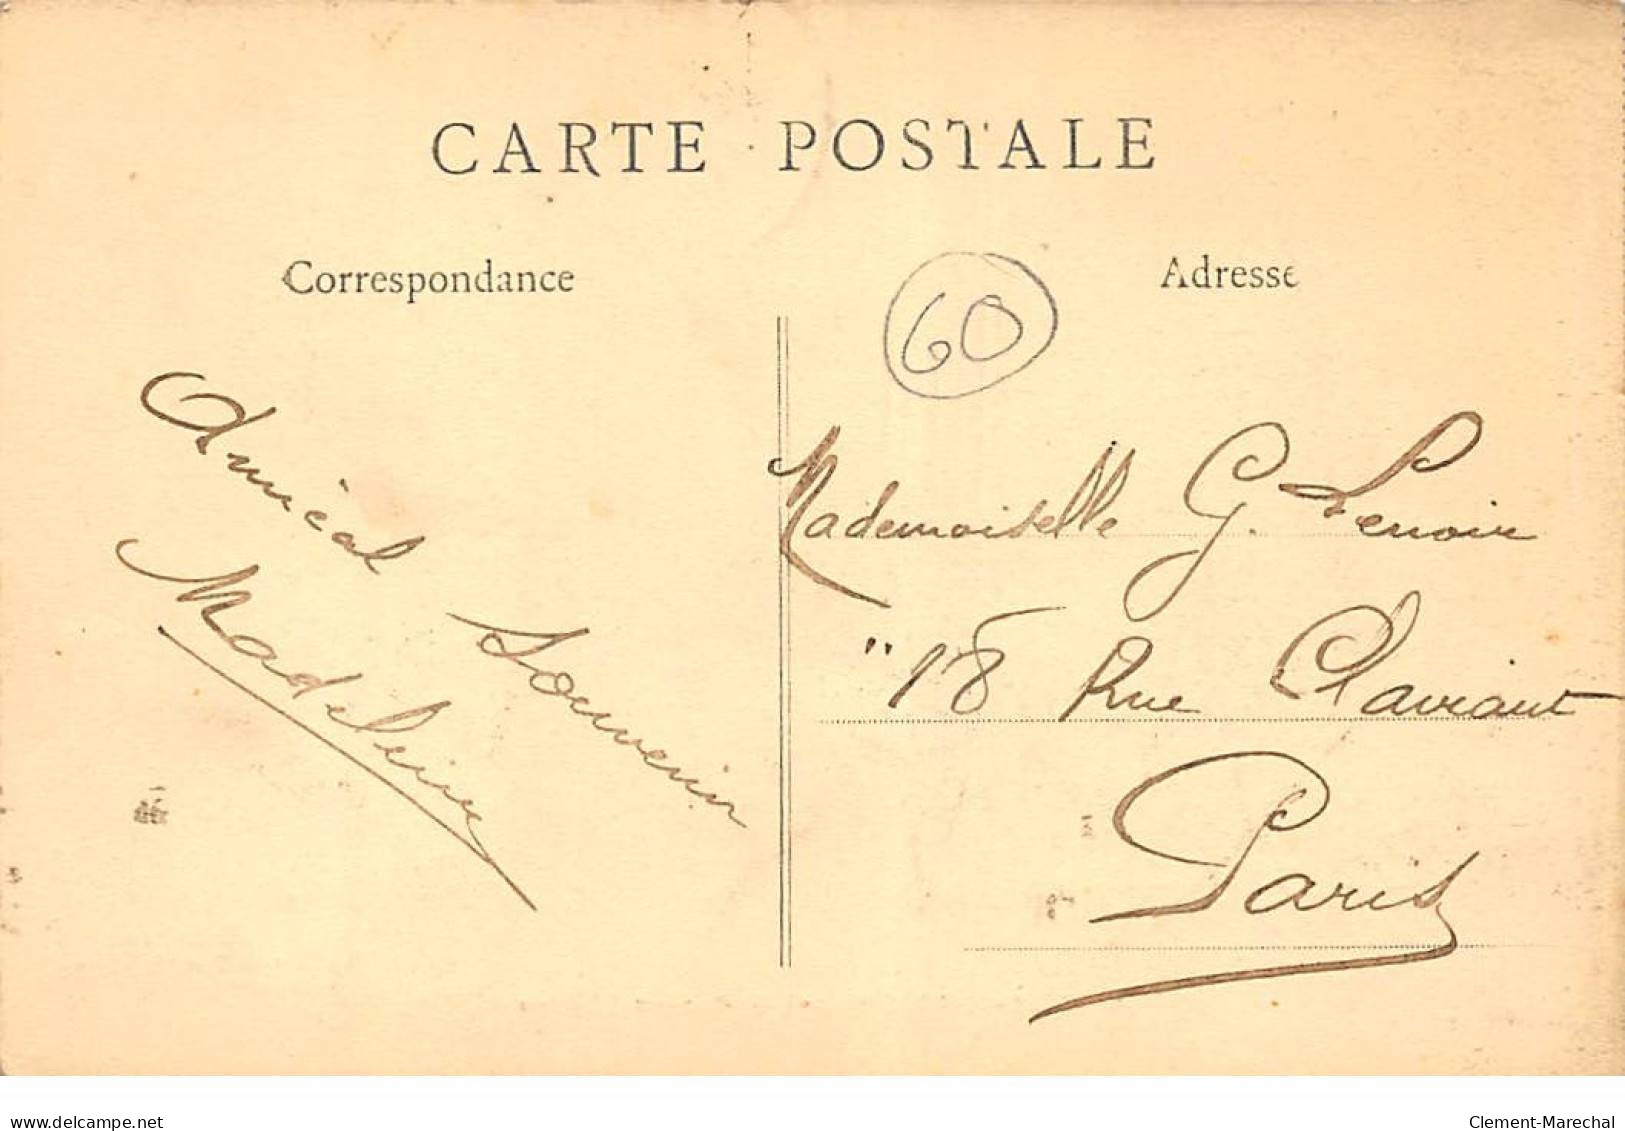 CARTE POSTALE
Correspondance
Adresse
60
Amical Souvenir
Madeleine
Mademoiselle G. Lenoir
"18 Rue Claviaut
Paris
www.delcampe.net
Clement-Marechal